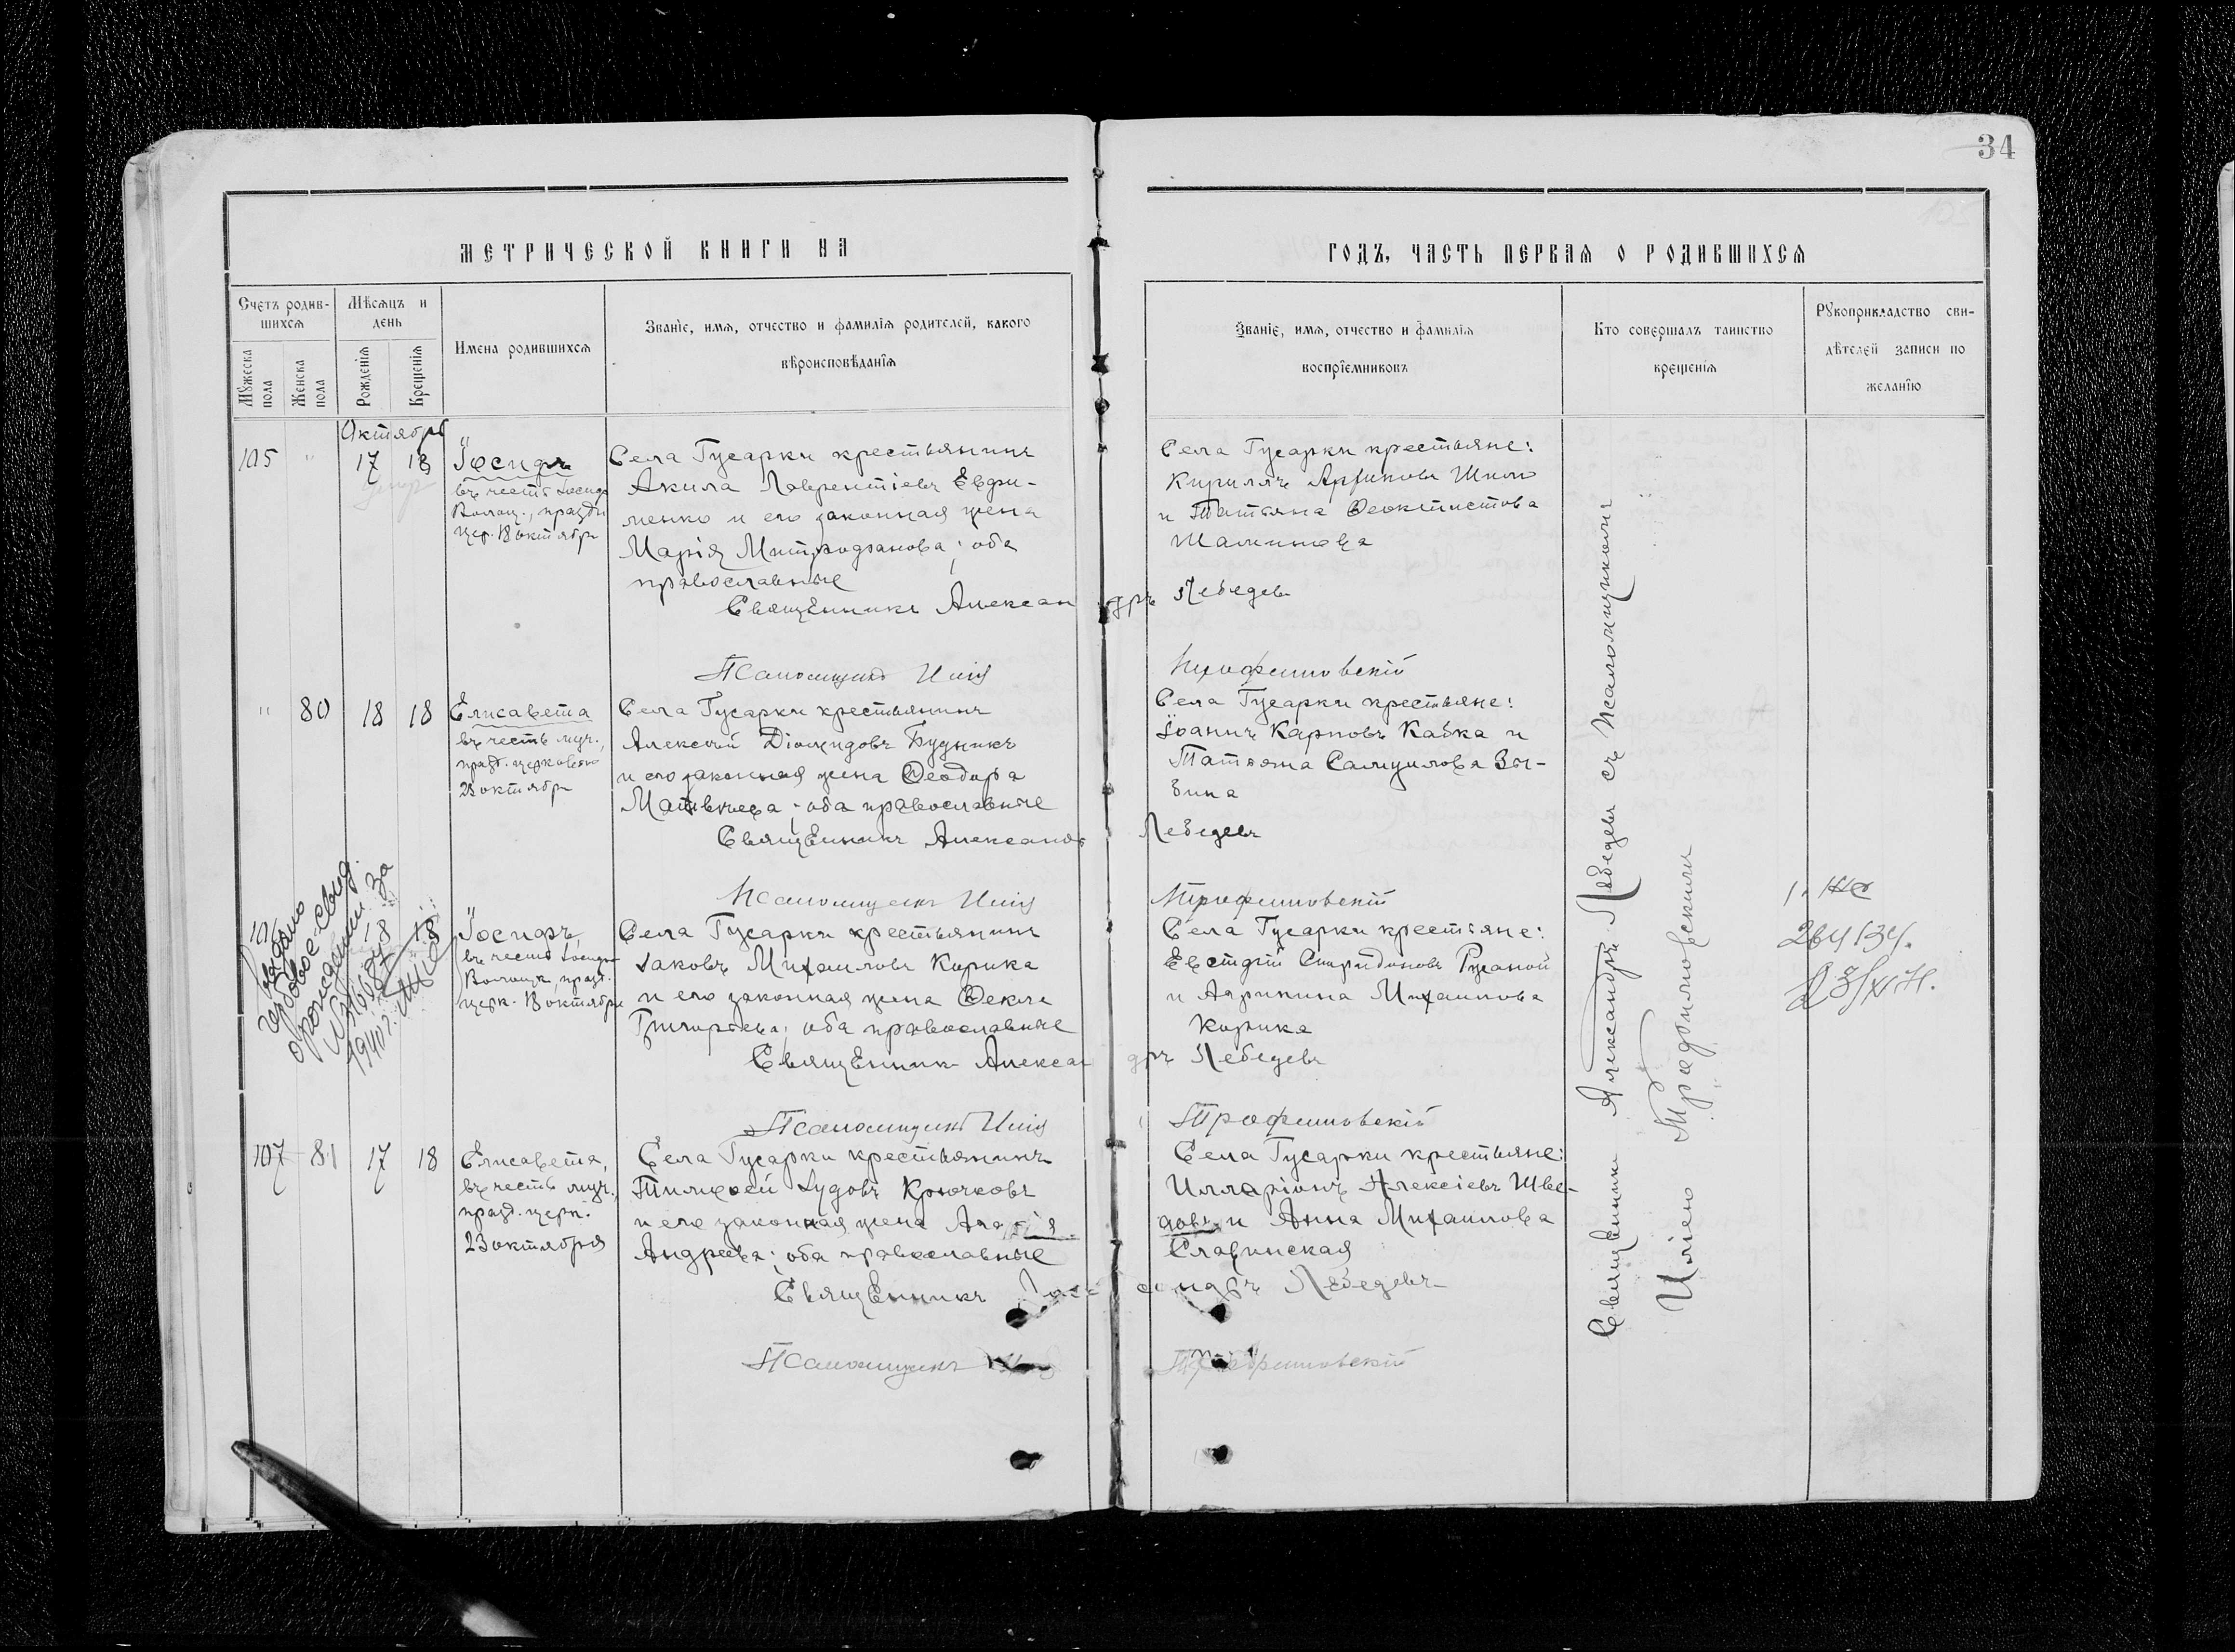 34
МЕТРИЧЕСКОЙ КНИГИ НА
ГОДЪ, ЧАСТЬ ПЕРВАЯ О РОДИВШИХСЯ
Счетъ родив-
шихся
Мѣсяцъ и
день
Мужеска
пола
Женска
пола
Рожденія
Крещенія
Имена родившихся
Званіе, имя, отчество и фамилія родителей, какого
вѣроисповѣданія
Званіе, имя, отчество и фамилія
воспріемниковъ
Кто совершалъ таинство
крещенія
Рукоприкладство сви-
дѣтелей записи по
желанію
Октябрь
105 " 17 18
Іосифъ
въ честь Іосифа
Волоц., праздн
цер. 18 октября
Села Гусарки крестьянинъ
Акила Лаврентіевъ Ефи-
менко и его законная жена
Марія Митрофанова; оба
православные
Села Гусарки крестьяне:
Кириллъ Шило
и Татіана Феоктистова
Священникъ Александръ Лебедевъ
Псаломщикъ Илія Трофимовскій
" 80 18 18
Елисавета
въ честь муч.,
празд. церковью
23 октября
Села Гусарки крестьянинъ
Алексѣй Діомидовъ Будникъ
и его законная жена Феодора
Матвѣева; оба православные
Села Гусарки крестьяне:
Іоаннъ Карповъ Кабка и
Татьяна Самуилова Зы-
бина
Священникъ Александръ Лебедевъ
Псаломщикъ Илія Трофимовскій
106 18 18
выдано
гербовое свид.
о рождении за
1940г.
Іосифъ,
въ честь Іосифа
Волоцк., празд.
церк. 18 октября
Села Гусарки крестьянинъ
Іаковъ Михаиловъ Кирика
и его законная жена Фекла
Григорьева; оба православные
Села Гусарки крестьяне:
Евстафій Спиридоновъ Русаной
и Агрипина Михаилова
Кирика
Священникъ Александръ Лебедевъ
Псаломщикъ Илія Трофимовскій
107 81 17 18
Елисавета,
въ честь муч.,
празд. церк.
23 октября
Села Гусарки крестьянинъ
Тимофей Іудовъ Крючковъ
и его законная жена
Андреева; оба православные
Села Гусарки крестьяне:
Илларіонъ Алексіевъ Шве-
довъ и Анна Михаилова
Славинская
Священникъ Александръ Лебедевъ
Псаломщикъ Илія Трофимовскій
Священникъ Александръ Лебедевъ съ Псаломщикомъ
Иліею Трофимовскимъ